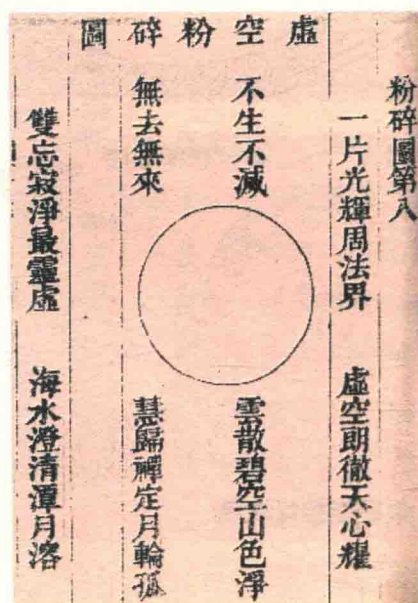 粉碎圖第八
虛空粉碎圖
一片光輝周法界
虛空朗徹天心耀
不生不滅
雲散碧空山色淨
無去無來
慧歸禪定月輪孤
雙忘寂淨最靈虛
海水澄清潭月溶